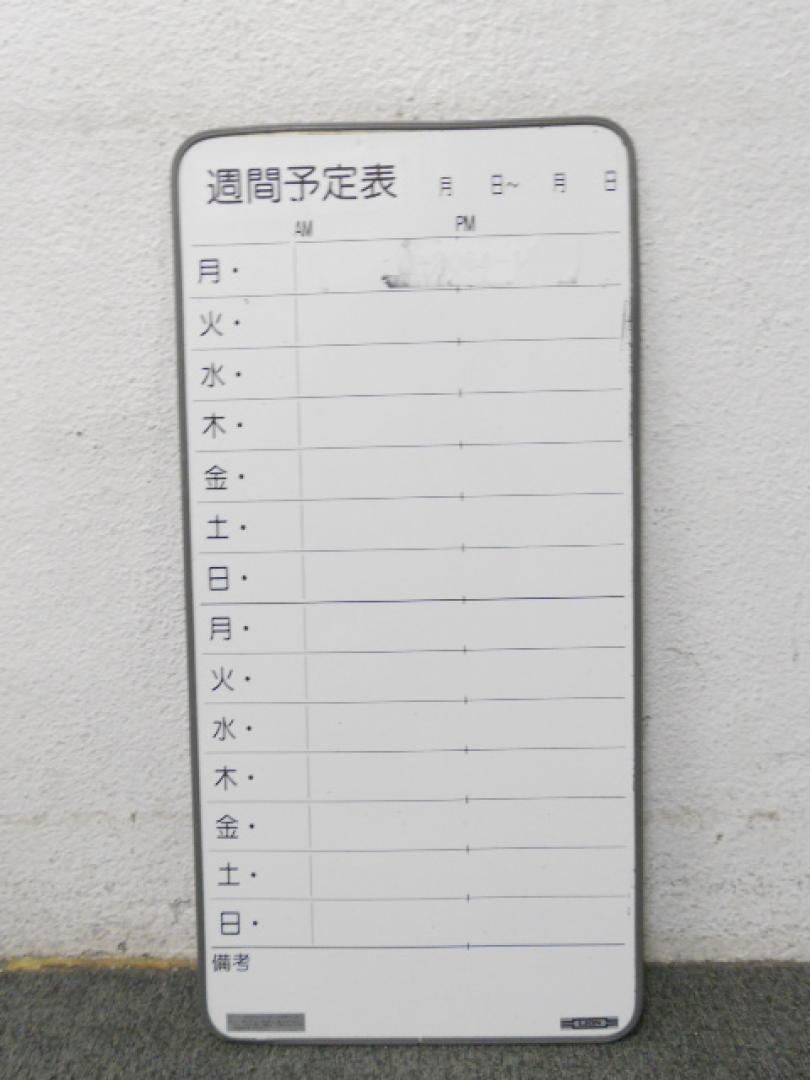 週間予定表 月 日～ 月 日
AM PM
月・
火・
水・
木・
金・
土・
日・
月・
火・
水・
木・
金・
土・
日・
備考
LION